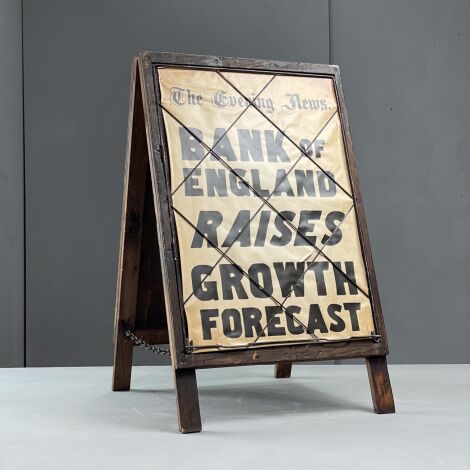 The Evening News.
BANK OF
ENGLAND
RAISES
GROWTH
FORECAST